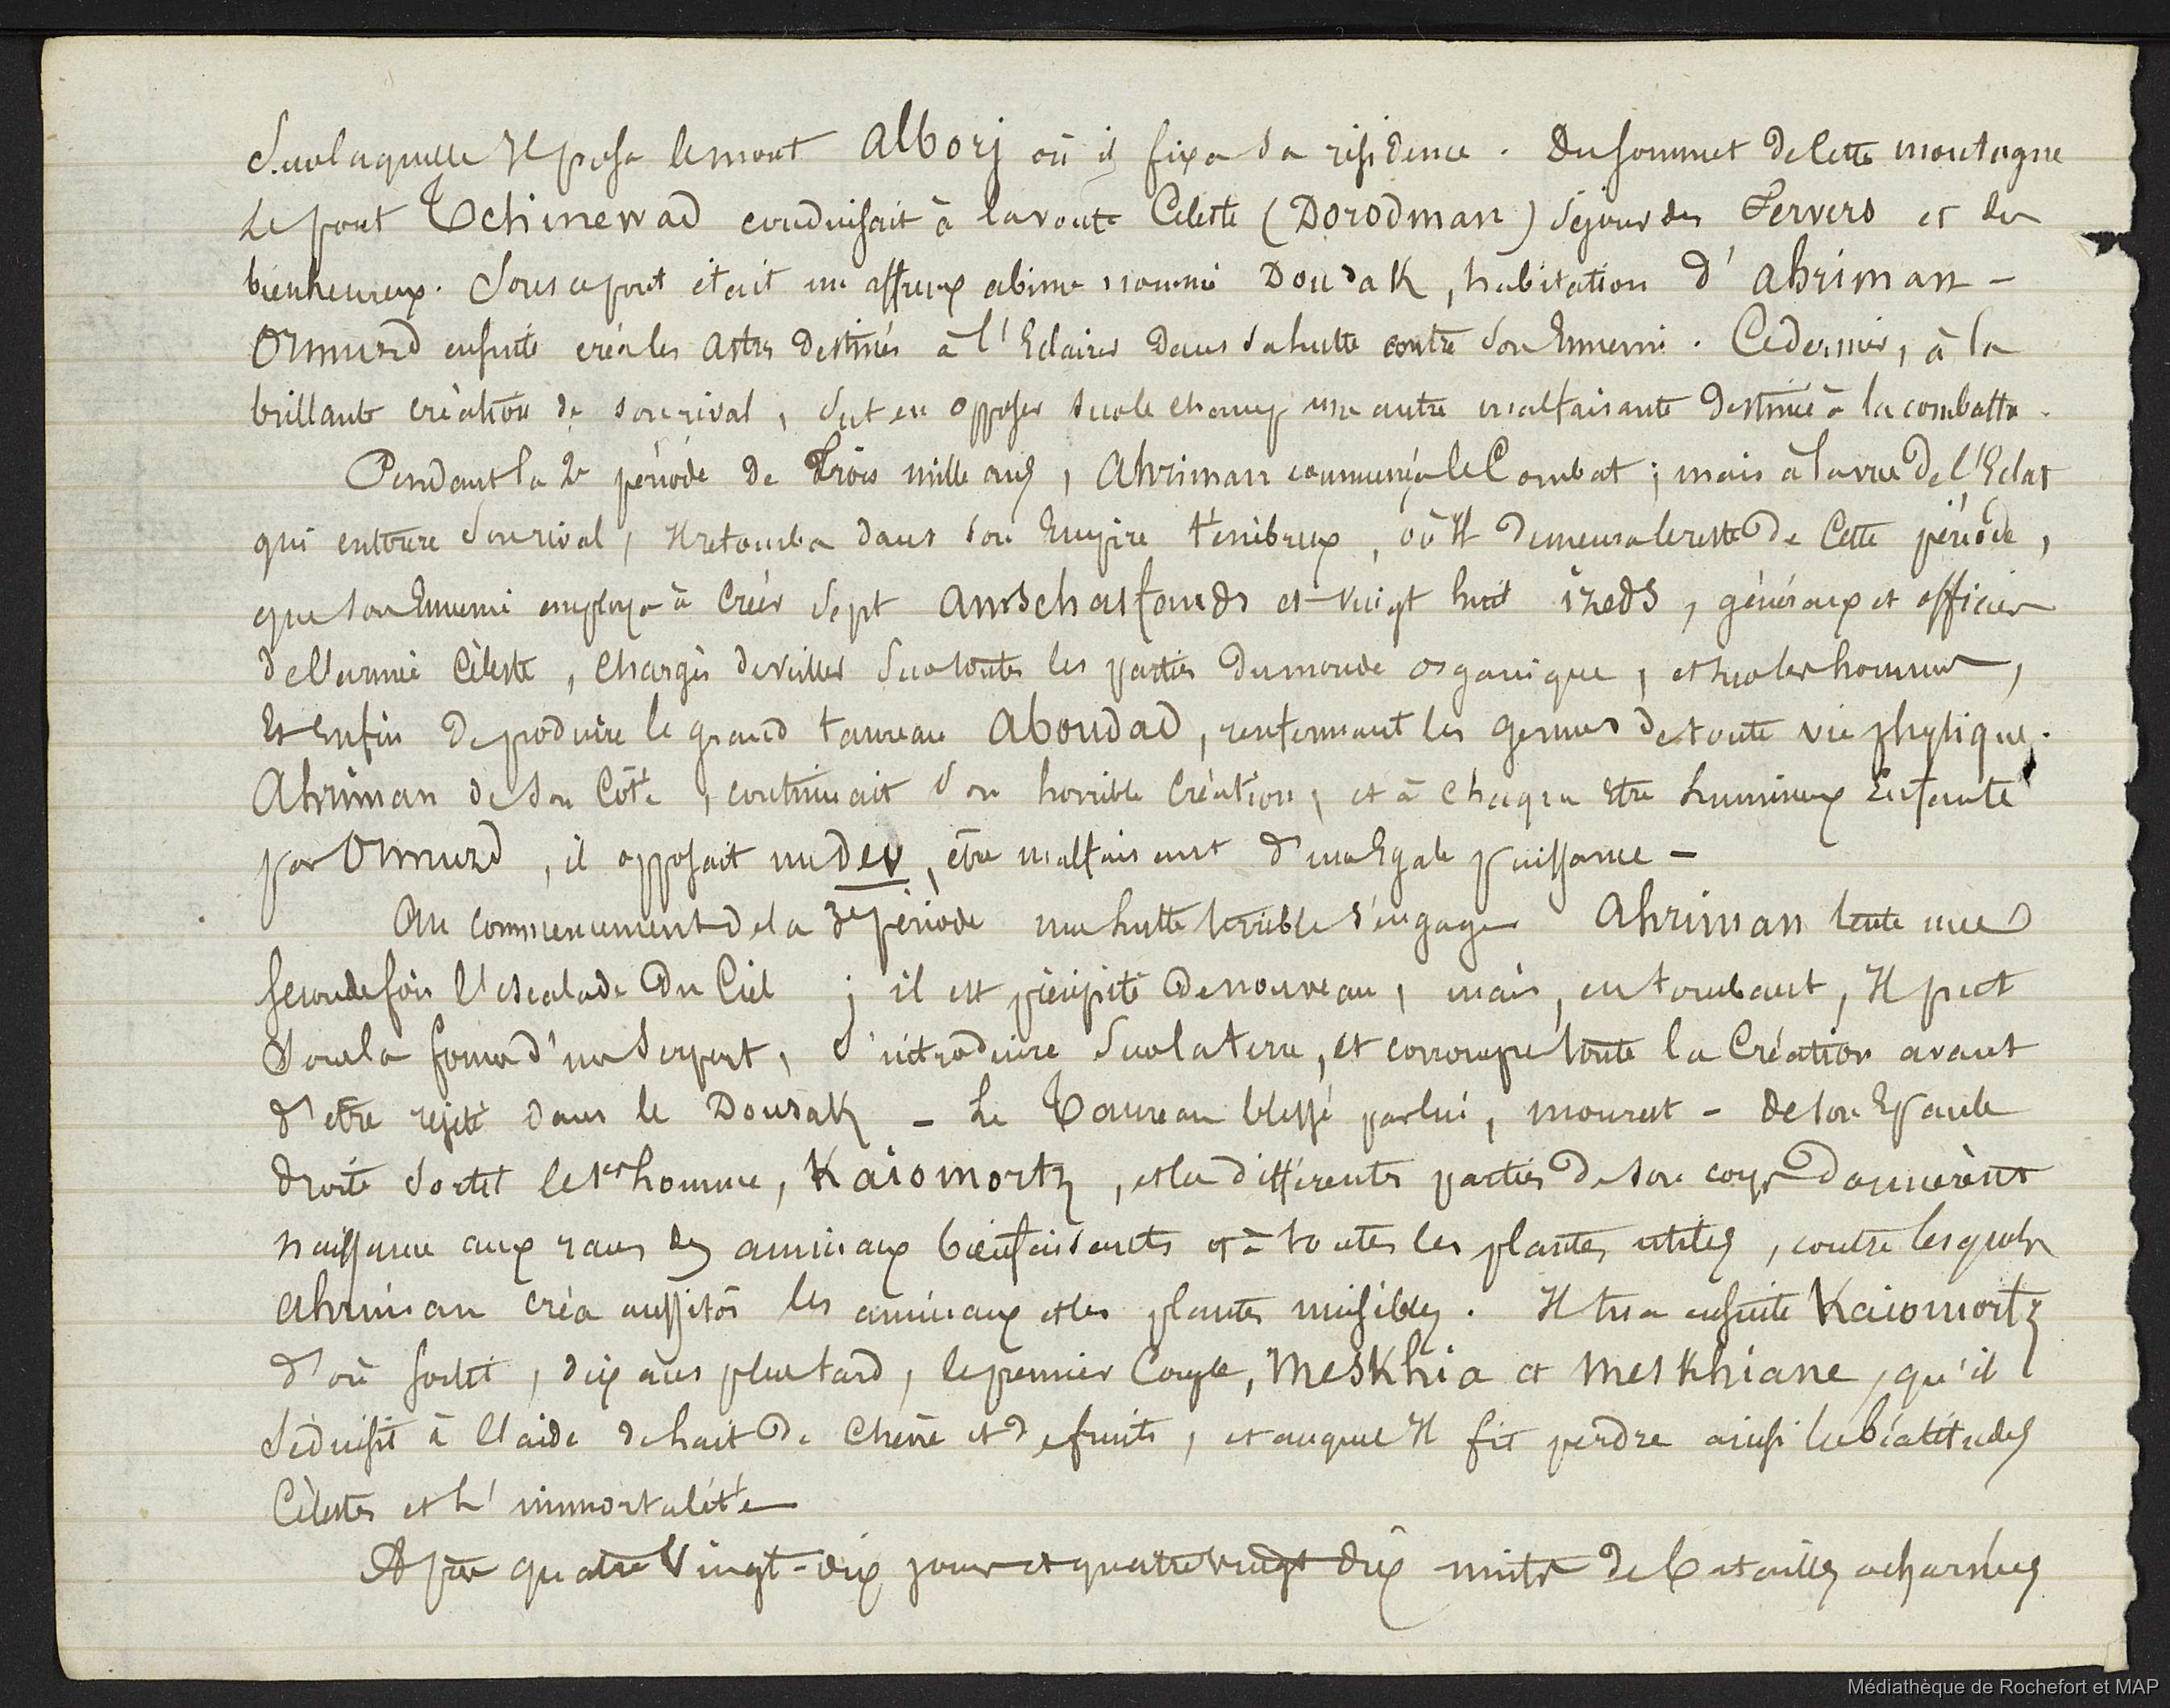 Sur laquelle Il posa le mont Alborj où il fixa sa résidence. Du sommet de cette montagne
Le pont Tchinewad conduisait à la voute Céleste (Dorodman) Séjour des Fervers et des
bienheureux. Sous ce pont était un affreux abime nommé Doudak, habitation d'Ahriman -
Ormuzd ensuite créa les Astres destinés à l'Eclairer dans sa lutte contre son Ennemi. Ce dernier, à la
brillante création de son rival, Sut en opposer sur le champ une autre malfaisante destinée à la combattre.
Pendant la 2e période de Trois mille ans, Ahriman commença le Combat ; mais à la vue de l'Eclat
qui entoure son rival, Il retomba dans son Empire ténèbreux, où Il demeura le reste de Cette période,
que son Ennemi employa à Créer Sept Amschasfands et vingt huit izeds, généraux et officiers
de l'armée Céleste, Chargés de veiller Sur toutes les parties du monde organique, et sur les hommes,
Et Enfin de produire le grand taureau Aboudad, renfermant les germes de toute vie physique.
Ahriman de son Côté, continuait son horrible Création, et à Chaque Etre Lumineux Enfanté
par Ormuzd, il opposait un dev, être malfaisant d'une Egale puissance -
Au commencement de la 3e période une lutte terrible s'engage Ahriman tente une
seconde fois l'escalade du Ciel ; il est précipité de nouveau, mais, en tombant, Il peut
Sous la forme d'un Serpent, S'introduire Sur la terre, et corrompre toute la Création avant
d'être rejeté dans le Douzak - Le Taureau blessé par lui, mourut - de son Epaule
droite Sortit le 1er homme, Kaiomortz, et les différentes parties de son corps donnèrent
naissance aux races des animaux bienfaisants et à toutes les plantes utiles, contre lesquels
Ahriman créa aussitôt les animaux et les plantes nuisibles. Il tua ensuite Kaiomortz
d'où sortit, dix ans plus tard, le premier Couple, Meskhia et Meskhiane, qu'il
Séduisit à l'aide de Lait de Chèvre et de fruits, et auquel Il fit perdre ainsi les béatitudes
Célestes et L'immortalité
Après quatre Vingt-dix jours et quatre vingt dix nuits de batailles acharnées
Médiathèque de Rochefort et MAP